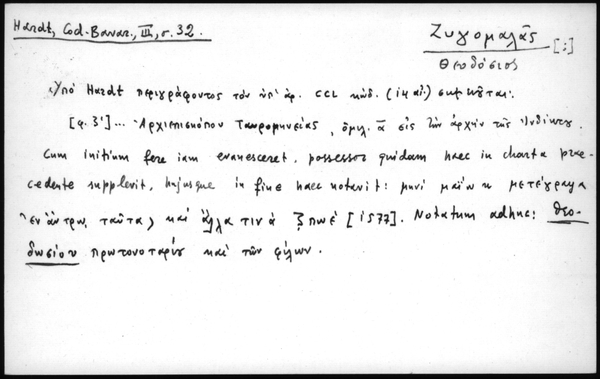 Hardt, Cod. Bavar., III, σ. 32.
Ζυγομαλᾶς [;]
Θεοδόσιος
Ὑπό Hardt περιγράφοντος τόν ὑπ' ἀρ. CCL κώδ. (ις αἰ.) σημειοῦται:
[φ. 3'] ... Ἀρχιεπισκόπου Ταυρομηνείας, ὁμιλ. α εἰς τήν ἀρχήν τῆς Ἰνδίκτου.
Cum initium fere iam evanesceret, possessor quidam haec in charta prae-
cedente supplevit, hujusque in fine haec notavit: μηνί μαίω μετέγραψα
ἐν ἄντρω, ταῦτα, καί ἄλλα τινά ζπωέ [1577]. Notatum adhuc: θεο-
δωσίου πρωτονοταρίου καί τῶν φίλων.